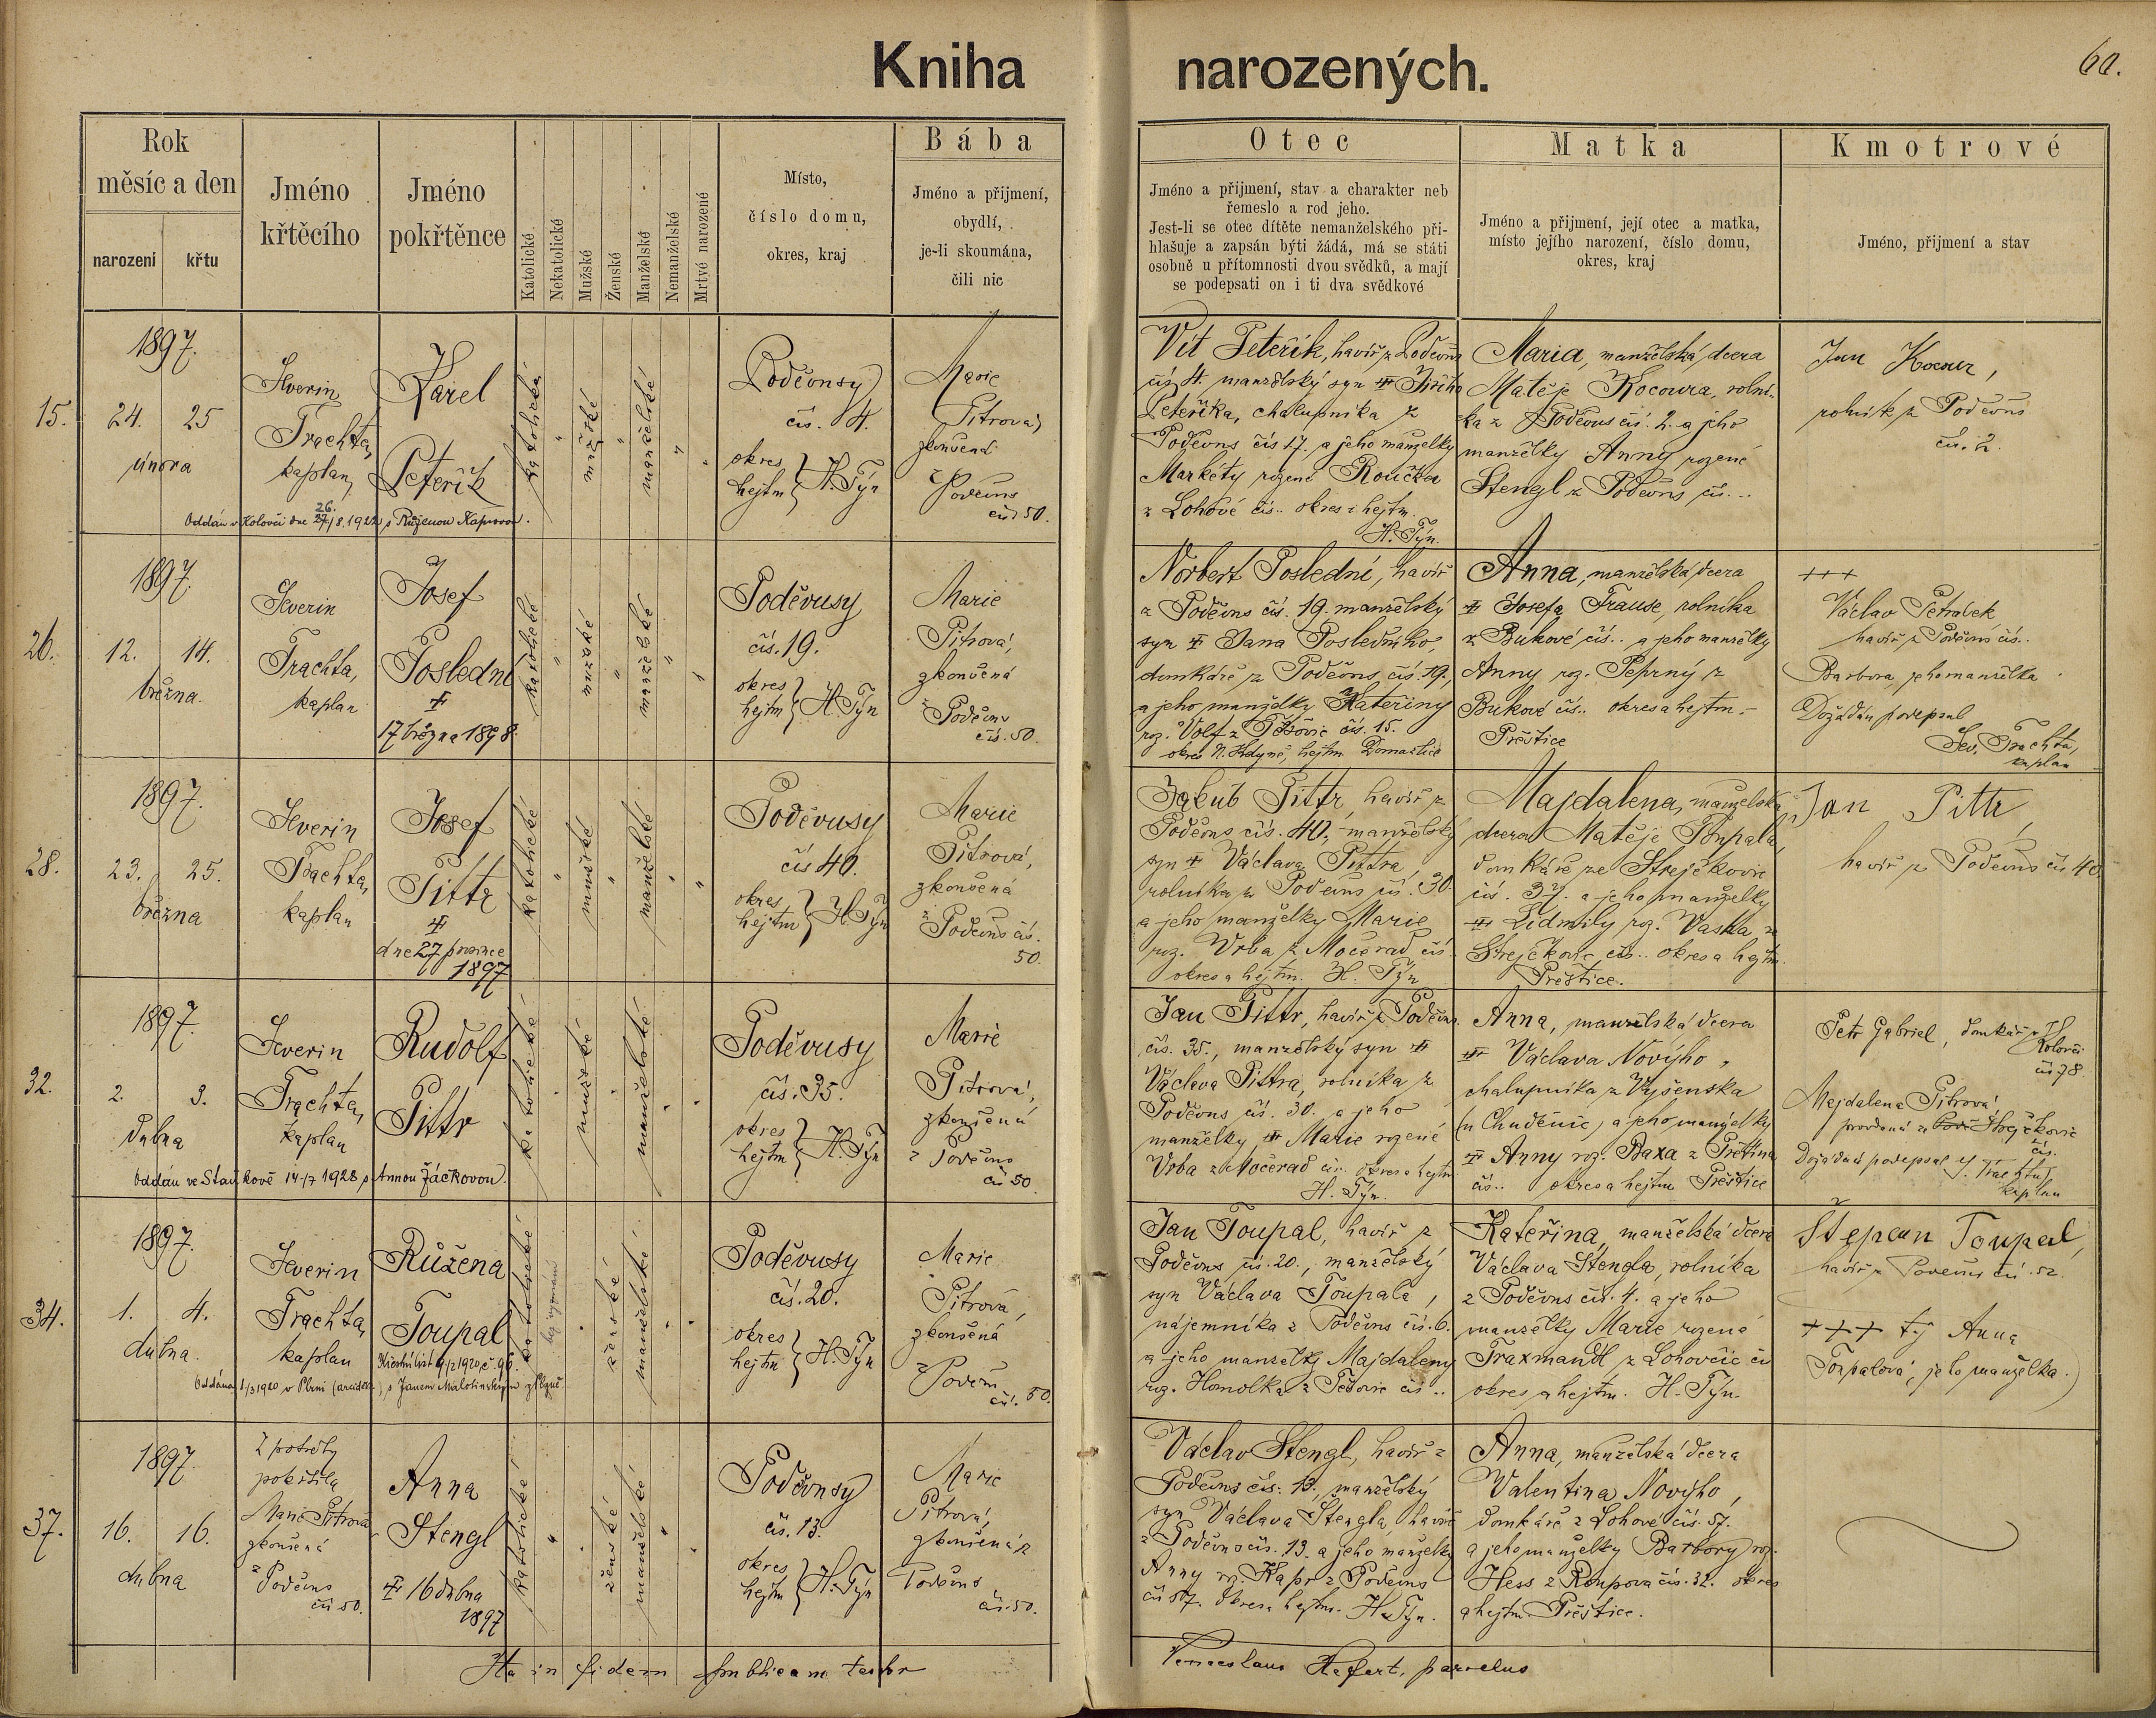 Kniha narozených.
60.
Rok
měsíc a den
narození
křtu
Jméno
křtěcího
Jméno
pokřtěnce
Katolické
Nekatolické
Mužské
Ženské
Manželské
Nemanželské
Mrtvé narozené
Místo,
číslo domu,
okres, kraj
Bába
Jméno a přijmení,
obydlí,
je-li skoumána,
čili nic
Otec
Jméno a přijmení, stav a charakter neb
řemeslo a rod jeho.
Jest-li se otec dítěte nemanželského při-
hlašuje a zapsán býti žádá, má se státi
osobně u přítomnosti dvou svědků, a mají
se podepsati on i ti dva svědkové
Matka
Jméno a přijmení, její otec a matka,
místo jejího narození, číslo domu,
okres, kraj
Kmotrové
Jméno, přijmení a stav
15.
1897.
24. 25
února
Severin
Trachta,
kaplan
Karel
Peteřík
katolické
mužské
manželské
Poděvusy
čís. 4.
okres
hejtm } H. Týn
Marie
Pitrová,
zkoušená
z Poděvus
čís 50.
Oddán v Kolovči dne 26./8. 1922 s Růženou Kaprovou.
Vít Peteřík, havíř z Poděvus
čís 4. manželský syn Jiřího
Peteříka, chalupníka z
Poděvus čís 17. a jeho manželky
Markéty rozené Roučka
z Lohové čís.. okres i hejtm.
H. Týn.
Maria, manželská dcera
Matěje Kocoura, rolní-
ka z Poděvus čís. 2. a jeho
manželky Anny rozené
Stengl z Poděvus čís...
Jan Kocour,
rolník z Poděvus
čís. 2.
26.
1897.
12. 14.
března.
Severin
Trachta,
kaplan
Josef
Poslední
17 března 1898.
katolické
mužské
manželské
Poděvusy
čís. 19.
okres
hejtm } H. Týn
Marie
Pitrová,
zkoušená
z Poděvus
čís. 50.
Norbert Poslední, havíř
z Poděvus čís. 19. manželský
syn Jana Posledního,
domkáře z Poděvus čís. 19.,
a jeho manželky Kateřiny
roz. Volf z Těšovic čís. 15.
okres N. Kdyně, hejtm Domažlice
Anna, manželská dcera
Josefa Trause, rolníka
z Bukové čís.. a jeho manželky
Anny roz. Peprný z
Bukové čís.. okres a hejtm.
Přeštice
+++
Václav Petrabek
havíř z Poděvus čís..
Barbora, jeho manželka.
Dožádán podepsal
Sev. Trachta,
kaplan
28.
1897.
23. 25.
března
Severin
Trachta,
kaplan
Josef
Pittr
dne 27 prosince
1897
katolické
mužské
manželské
Poděvusy
čís 40.
okres
hejtm } H. Týn
Marie
Pitrová,
zkoušená
z Poděvus čís.
50.
Jakub Pittr, havíř z
Poděvus čís. 40., manželský
syn Václava Pittra,
rolníka z Poděvus čís. 30.
a jeho manželky Marie
roz. Vrba z Močerad čís
okres a hejtm. H. Týn
Majdalena, manželská
dcera Matěje Toupala,
domkáře ze Strejčkovic
čís. 37. a jeho manželky
Lidmily roz. Vaska z
Strejčkovic čís.. okres a hejtm.
Přeštice.
Jan Pittr,
havíř z Poděvus čís 40.
32.
1897.
2. 3.
dubna
Severin
Trachta,
kaplan
Rudolf
Pittr
katolické
mužské
manželské
Poděvusy
čís. 35.
okres
hejtm } H. Týn
Marie
Pitrová,
zkoušená
z Poděvus
čís 50.
Oddán ve Staňkově 14./7 1928 s Annou Žáčkovou.
Jan Pittr, havíř z Poděvus
čís. 35., manželský syn
Václava Pittra, rolníka z
Poděvus čís. 30. a jeho
manželky Marie rozené
Vrba z Močerad čís.. okres a hejtm
H. Týn.
Anna, manželská dcera
Václava Nového,
chalupníka z Vyšenska
(u Chuděnic) a jeho manželky
Anny roz. Baxa z Přetína
čís.. okres a hejtm Přeštice
Petr Gabriel, domkář z
Kolovče
čís 78.
Majdalena Pitrová
provdaná ze Strejčkovic
čís.
Dožádán podepsal S. Trachta,
kaplan
34.
1897.
1. 4.
dubna.
Severin
Trachta,
kaplan
Růžena
Toupal
Křestní list 9/2 1920 č. 96.
katolické
bez vyznání
ženské
manželské
Poděvusy
čís. 20.
okres
hejtm } H. Týn
Marie
Pitrová,
zkoušená
z Poděvus
čís. 50.
Oddána 1/3 1920 v Plzni (arciděk.) s Janem Malotínským z Plzně
Jan Toupal, havíř z
Poděvus čís. 20., manželský
syn Václava Toupala,
nájemníka z Poděvus čís. 6.
a jeho manželky Majdaleny
roz. Homolka z Těšovic čís..
Kateřina, manželská dcera
Václava Štengla, rolníka
z Poděvus čís. 4. a jeho
manželky Marie rozené
Traxmandl z Lohovčic čís
okres a hejtm. H. Týn.
Štěpán Toupal,
havíř z Poděvus čís. 52.
+++ Anna
Toupalová, jeho manželka.
37.
1897
16. 16.
dubna
Z potřeby
pokřtila
Marie Pitrová
zkoušená
z Poděvus
čís 50.
Anna
Stengl
16 dubna
1897
katolické
ženské
manželské
Poděvusy
čís. 13.
okres
hejtm } H. Týn
Marie
Pitrová,
zkoušená z
Poděvus
čís. 50.
Václav Stengl, havíř z
Poděvus čís. 13., manželský
syn Václava Štengla, havíře
z Poděvus čís. 13. a jeho manželky
Anny roz. Kapr z Poděvus
čís 57. okres a hejtm. H. Týn.
Anna, manželská dcera
Valentina Nového,
domkáře z Lohové čís. 57.
a jeho manželky Barbory roz.
Hess z Roupova čís. 32. okres
a hejtm. Přeštice.
Ita in fidem publicam testor
Venceslaus Hefert, parochus